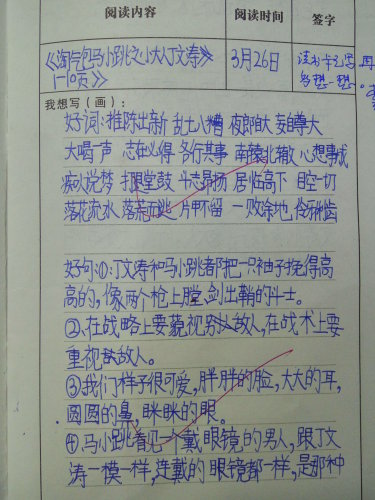 阅读内容 阅读时间 签字
《淘气包马小跳之小大人丁文涛》 3月26日
1-10页
我想写(画):
好词:推陈出新 乱七八糟 夜郎自大 妄自尊大
大喝一声 志在必得 各行其事 南辕北辙 心想事成
痴人说梦 打退堂鼓 斗志昂扬 居临高下 目空一切
落花流水 落荒而逃 片甲不留 一败涂地 伶牙俐齿
好句①:丁文涛和马小跳都把一只袖子挽得高
高的,像两个枪上膛、剑出鞘的斗士。
②、在战略上要藐视敌人,在战术上要
重视敌人。
③我们样子很可爱,胖胖的脸,大大的耳,
圆圆的鼻,眯眯的眼。
④、马小跳看见一个戴眼镜的男人,跟丁文
涛一模一样,连戴的眼镜都一样,是那种